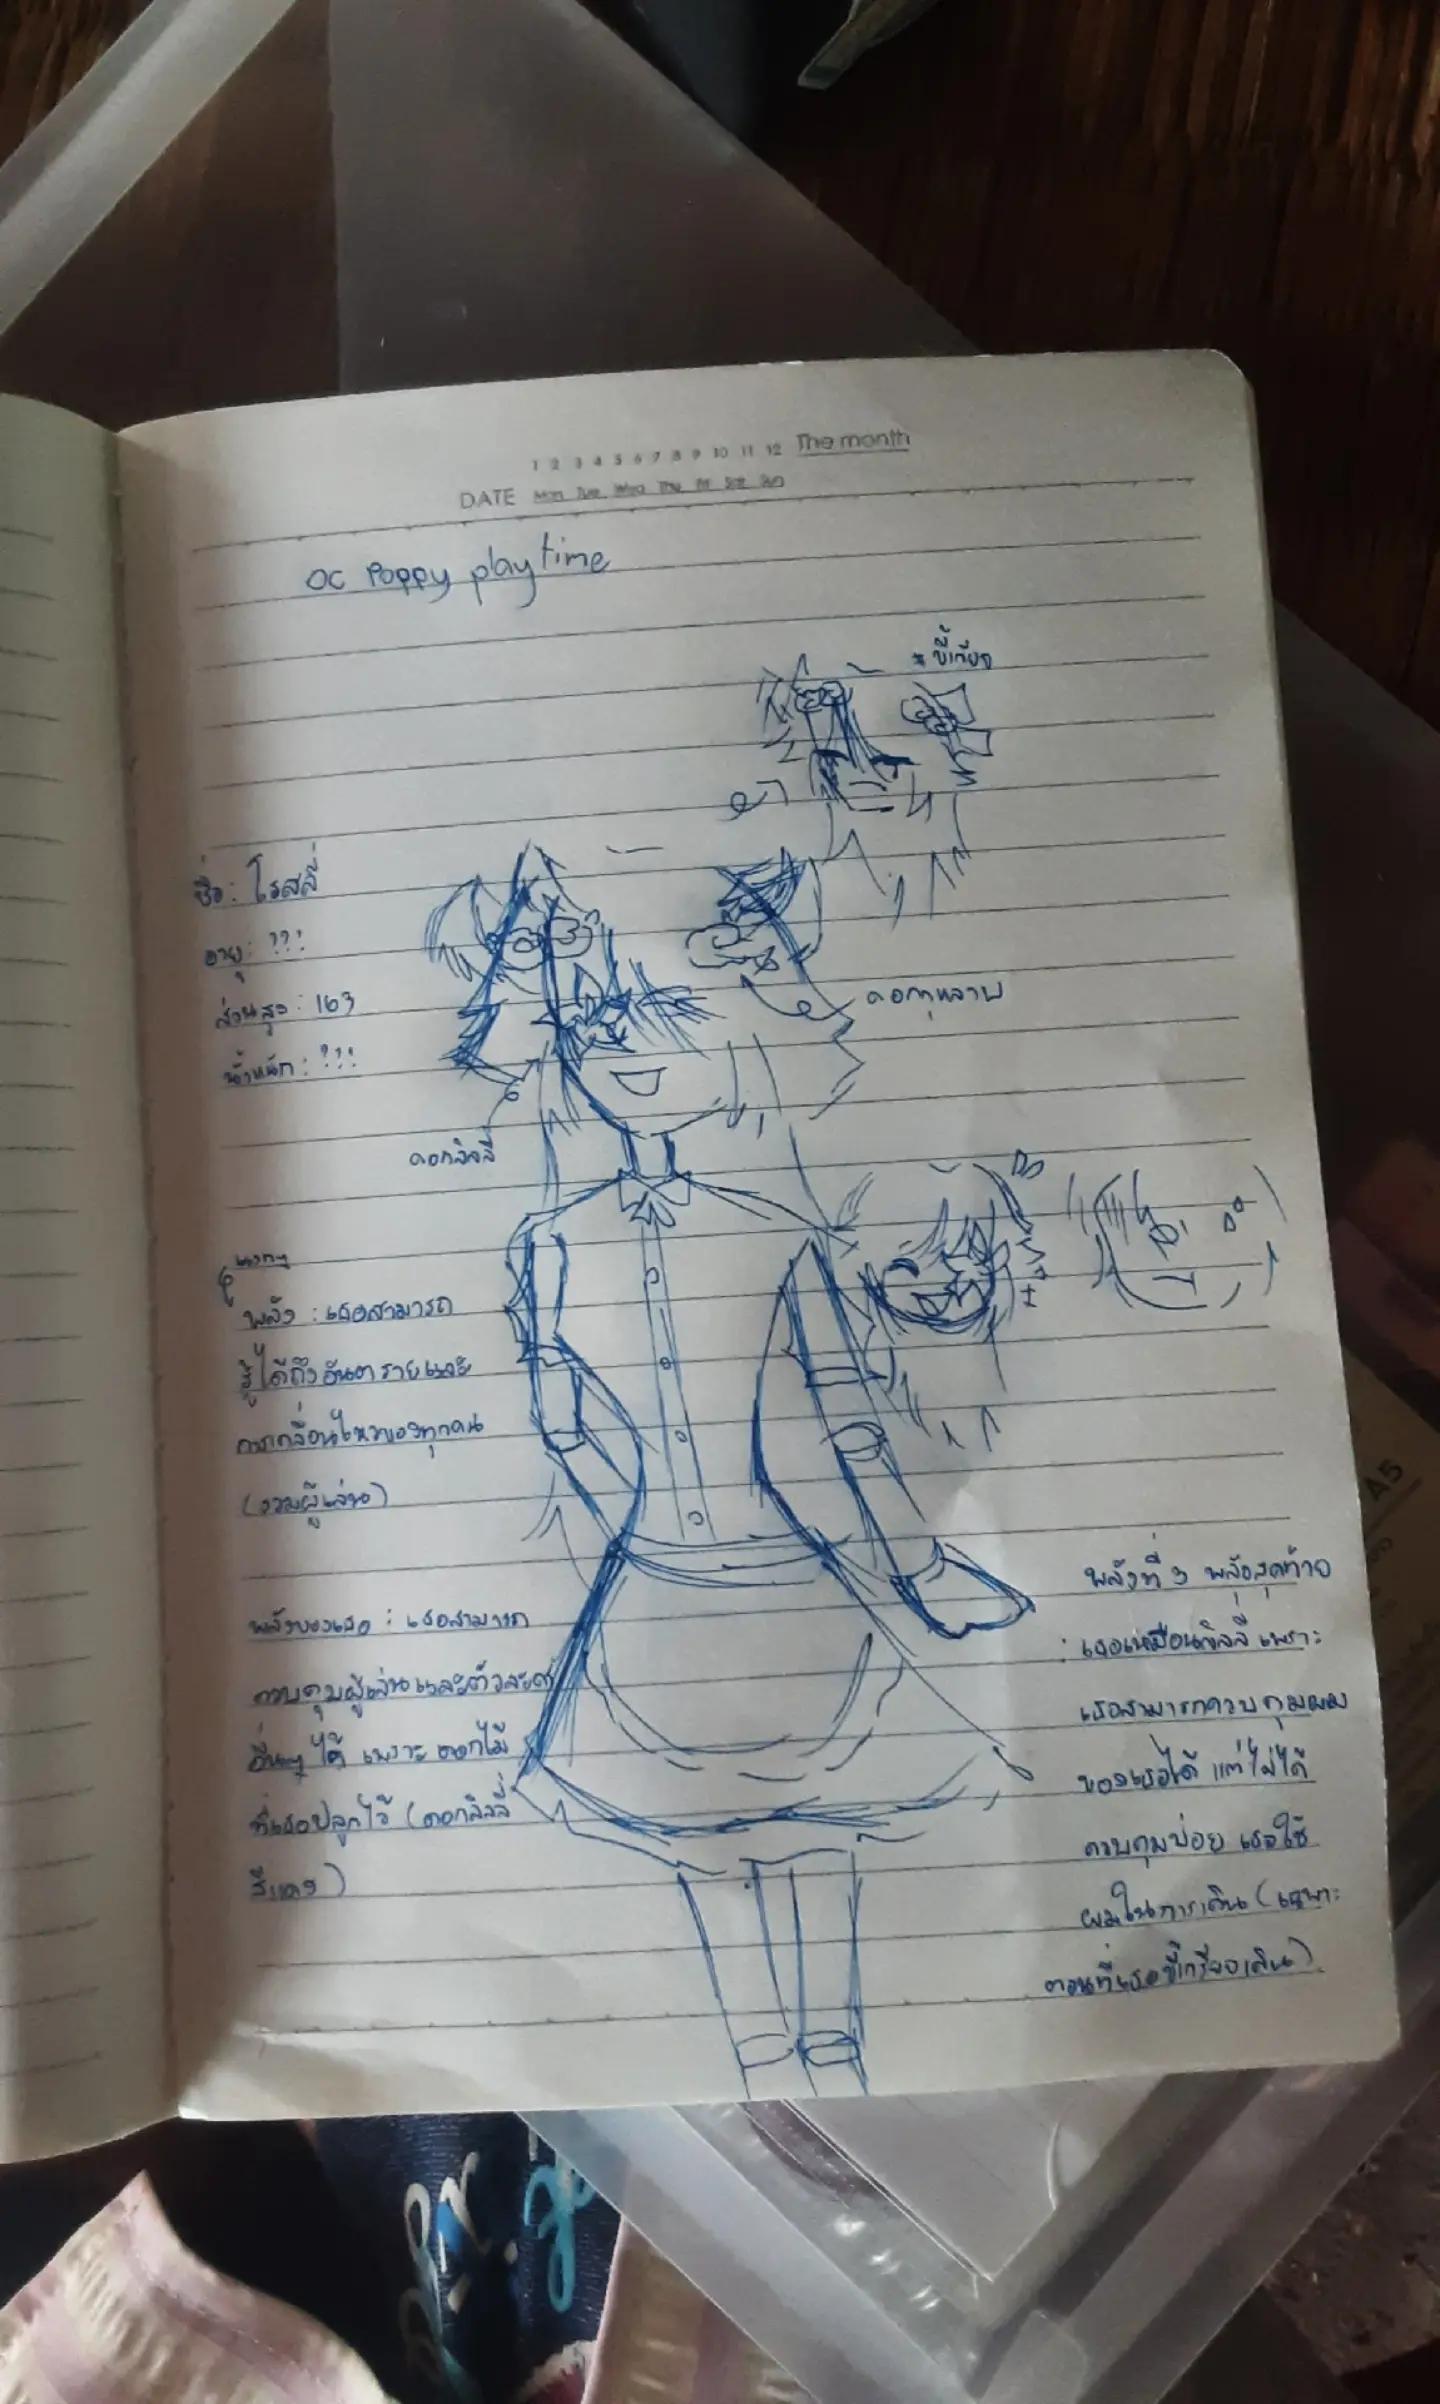 1 2 3 4 5 6 7 8 9 10 11 12 The month
DATE Mon Tue Wed Thu Fri Sat Sun
OC Poppy playtime
*ขี้เกียจ
ชื่อ: โรสลี่
อายุ: ???
ส่วนสูง: 163
น้ำหนัก: ???
ดอกกุหลาบ
ดอกลิลลี่
แรกๆ
พลัง : เธอสามารถ
รู้ได้ถึงอันตรายและ
การเคลื่อนไหวของทุกคน
(รวมผู้เล่น)
พลังของเธอ : เธอสามารถ
ควบคุมผู้เล่นและตัวละคร
อื่นๆได้ เพราะ ดอกไม้
ที่เธอปลูกไว้ (ดอกลิลลี่
สีแดง)
พลังที่ 3 พลังสุดท้าย
: เธอเหมือนลิลลี่ เพราะ
เธอสามารถควบคุมผม
ของเธอได้ แต่ไม่ได้
ควบคุมบ่อย เธอใช้
ผมในการเดิน (เฉพาะ
ตอนที่เธอขี้เกียจเดิน)
A5